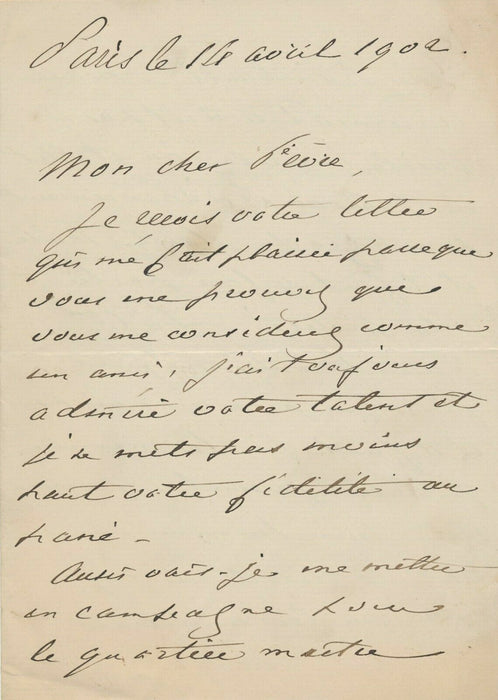 Paris le 14 avril 1902.
Mon cher
Je reçois votre lettre
qui me fait plaisir parceque
vous me prouvez que
vous me considérez comme
un ami, j'ai toujours
admiré votre talent et
je ne mets pas moins
haut votre fidélité au
passé -
Aussi vais-je me mettre
en campagne pour
le quartier maitre